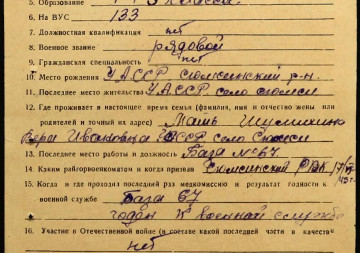 5. Образование 3 класса.
6. На ВУС 133
7. Должностная квалификация нет
8. Военное звание рядовой
9. Гражданская специальность нет
10. Место рождения УАССР Сюмсинский р-н.
11. Последнее место жительства УАССР село Сюмси
12. Где проживает в настоящее время семья (фамилия, имя и отчество жены или
родителей и точный их адрес) Мать Шумихина
Вера Ивановна УАССР село Сюмси
13. Последнее место работы и должность База № 67.
14. Каким райгорвоенкоматом и когда призван Сюмсинский РВК
15. Когда и где проходил последний раз медкомиссию и результат годности к
военной службе База 67
годен к военной службе
16. Участие в Отечественной войне (в составе какой последней части и в качестве
нет